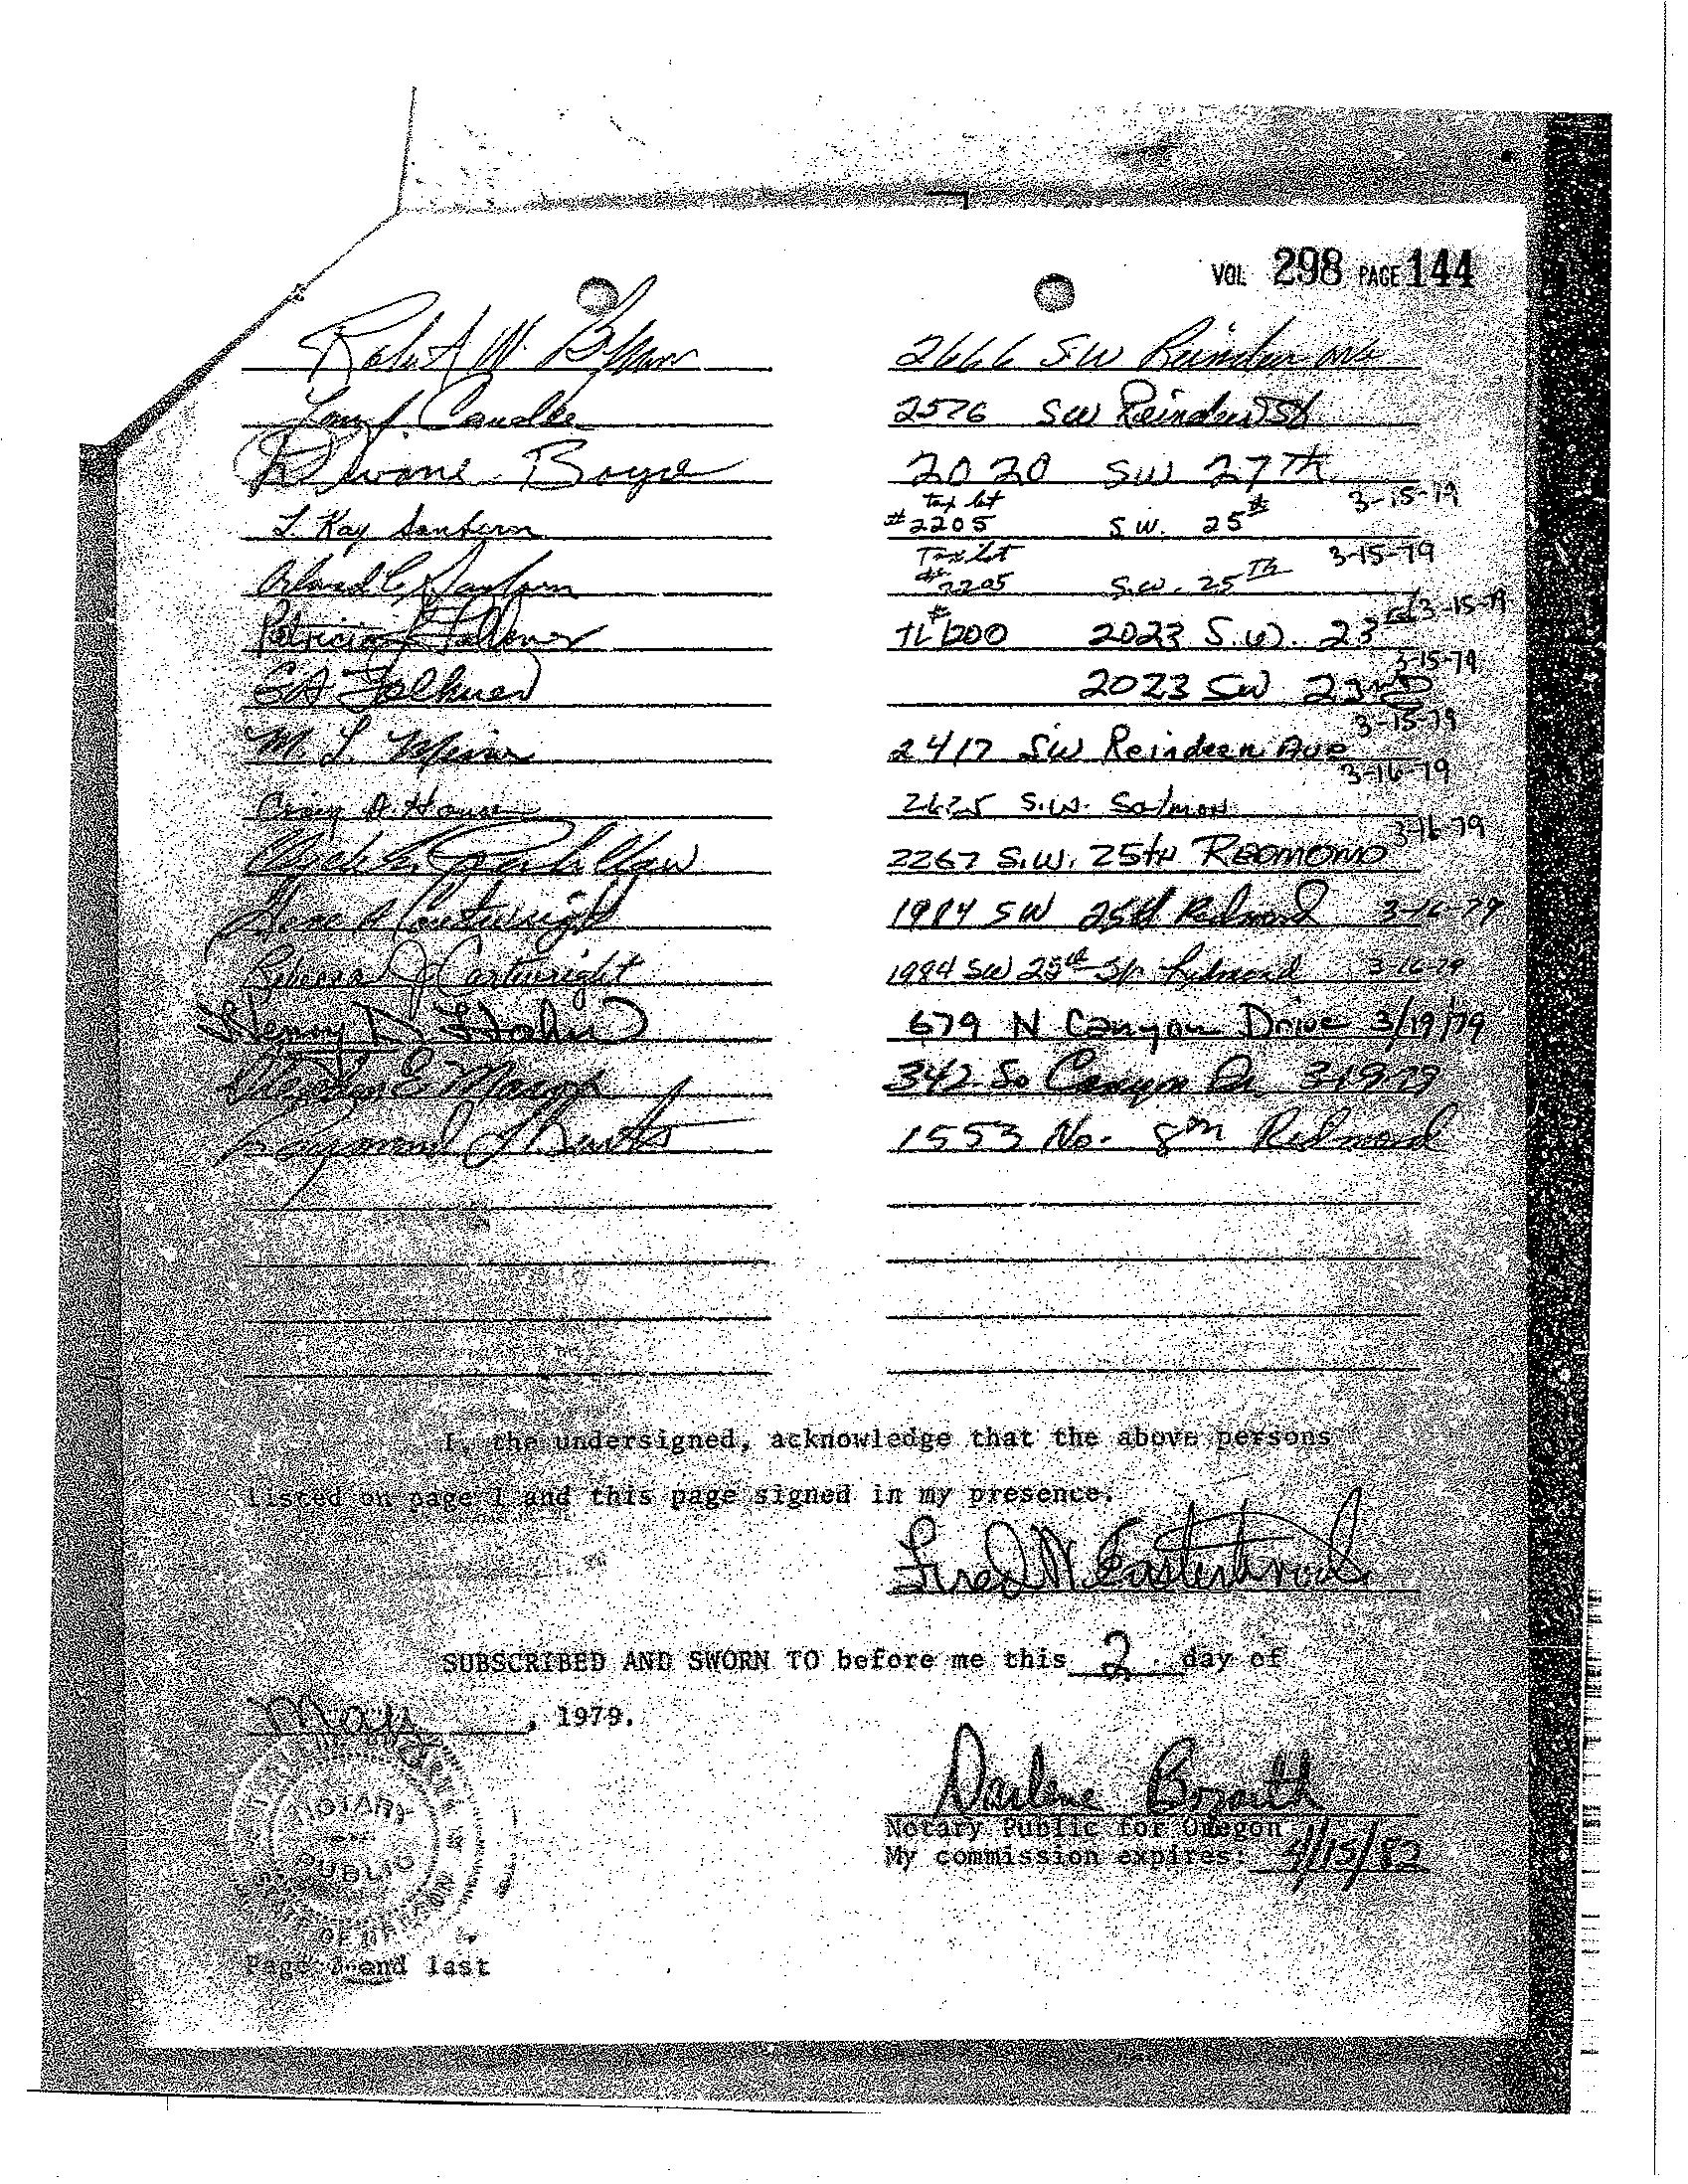 VOL 298 PAGE 144
Robert W. 2666 SW Reindeer Ave
2576 SW Reindeer St
Dwane Boyce 2020 SW 27th
Tax lot 3-15-79
L. Kay Sanborn #2205 S.W. 25th
Tax Lot 3-15-79
Sanborn #2205 S.W. 25TH
Patricia Falkner TL #1200 2023 S.W. 23rd 3-15-79
3-15-79
Falkner 2023 SW 23rd
3-15-79
M. L. 2417 SW Reindeer Ave
3-16-79
Craig A. House 2625 S.W. Salmon
3-16-79
Clyde 2267 S.W. 25th REDMOND
Gene A Cartwright 1984 SW 25th Redmond 3-16-79
Rebecca J Cartwright 1984 SW 25th St. Redmond 3-16-79
Henry D. 679 N Canyon Drive 3/19/79
E. 342 So Canyon Dr 3-19-79
Raymond 1553 No. 8th Redmond
I, the undersigned, acknowledge that the above persons
listed on page 1 and this page signed in my presence.
Fred W Easterbrook
SUBSCRIBED AND SWORN TO before me this 2 day of
May, 1979.
Darlene Bozarth
Notary Public for Oregon
My commission expires: 4/15/82
NOTARY
PUBLIC
STATE OF OREGON
Page and last